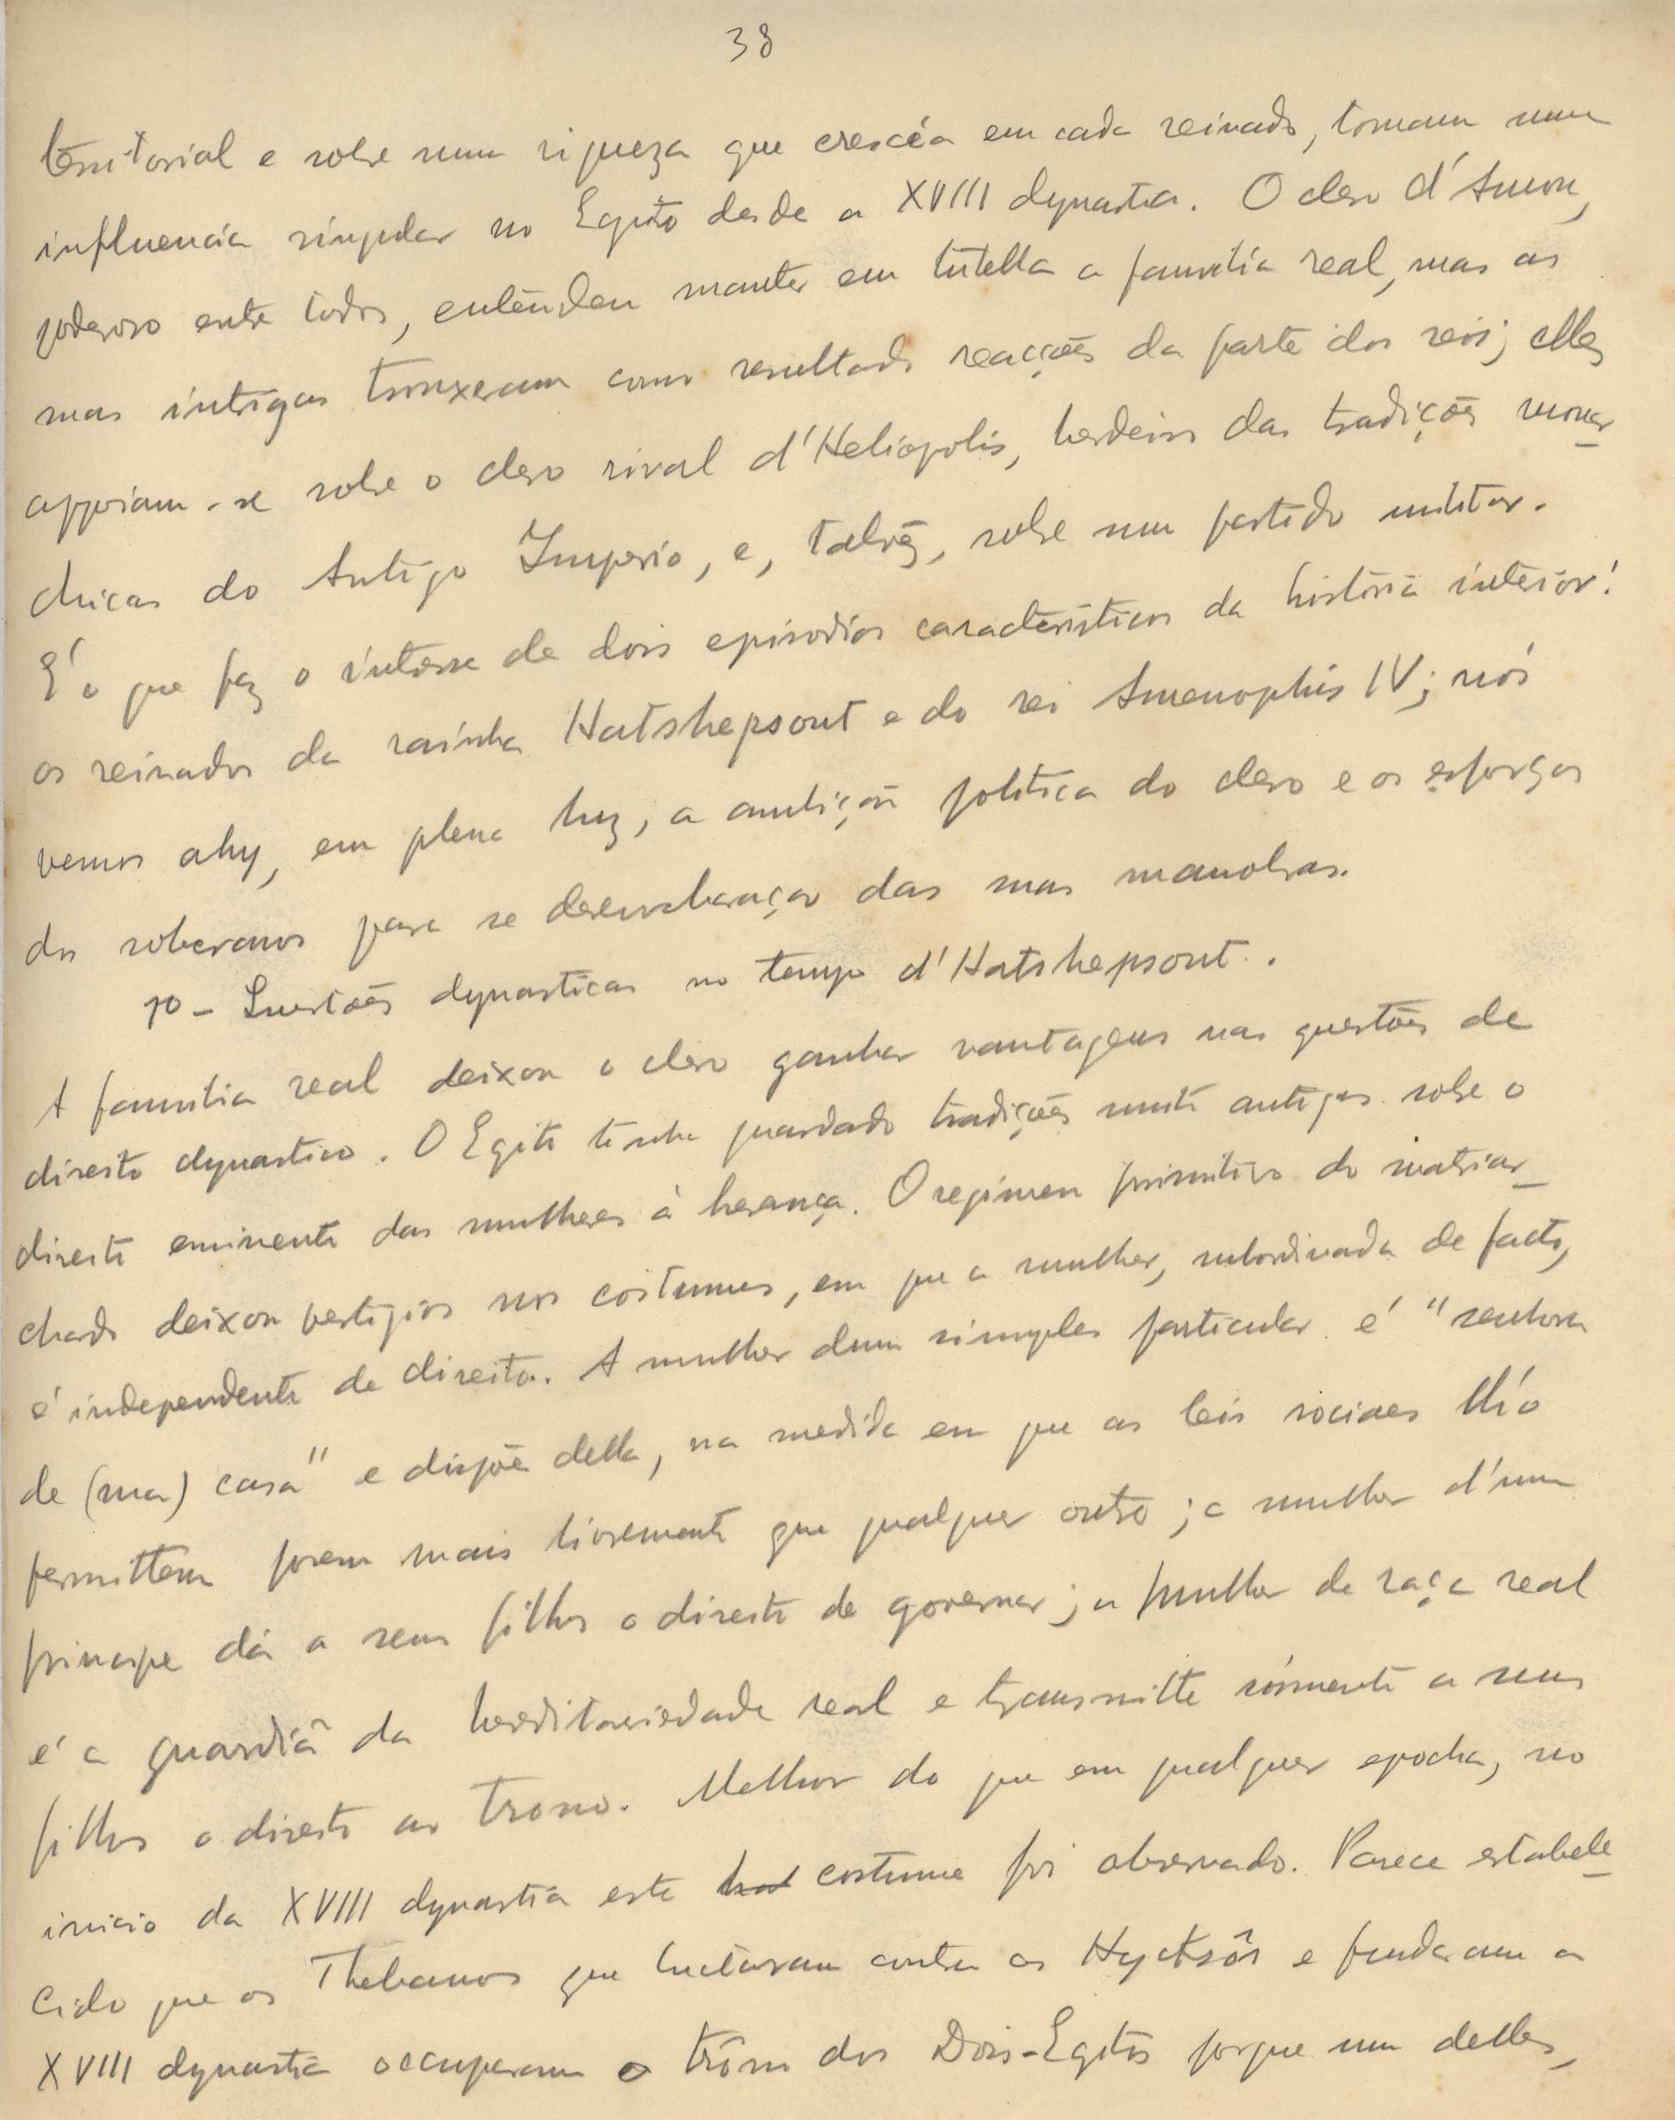 38
territorial e sobre uma riqueza que crescêa em cada reinado, tomam uma
influencia singular no Egito desde a XVIII dynastia. O clero d'Amon,
poderoso entre todos, entendeu manter em tutella a familia real, mas as
suas intrigas trouxeram como resultado reacções da parte dos reis; elles
appoiam-se sobre o clero rival d'Heliopolis, herdeiro das tradições monar
chicas do Antigo Imperio, e, talvêz, sobre um partido militar.
É o que faz o interesse de dois episodios caracteristicos da história interior:
os reinados da rainha Hatshepsout e do rei Amenophis IV; nós
vemos ahy, em plena luz, a ambição politica do clero e os esforços
dos soberanos para se desembaraçar das suas manobras.
10 - Questões dynasticas no tempo d'Hatshepsout.
A familia real deixou o clero ganhar vantagens nas questões de
direito dynastico. O Egito tinha guardado tradições muito antigas sobre o
direito eminente das mulheres à herança. O regimen primitivo do matriar
chado deixou vestigios nos costumes, em que a mulher, subordinada de facto,
é independente de direito. A mulher dum simples particular é "senhora
de (sua) casa" e dispõe della, na medida em que as leis sociaes lh'o
permittem porem mais livremente que qualquer outro; a mulher d'um
principe dá a seus filhos o direito de governar; a mulher de raça real
é a guardiã da hereditariedade real e transmitte sómente a seus
filhos o direito ao trono. Melhor do que em qualquer epocha, no
inicio da XVIII dynastia este costume foi observado. Parece estabele
cido que os Thebanos que luctaram contra os Hycksôs e fundaram a
XVIII dynastia occuparam o trôno dos Dois-Egitos porque um delles,